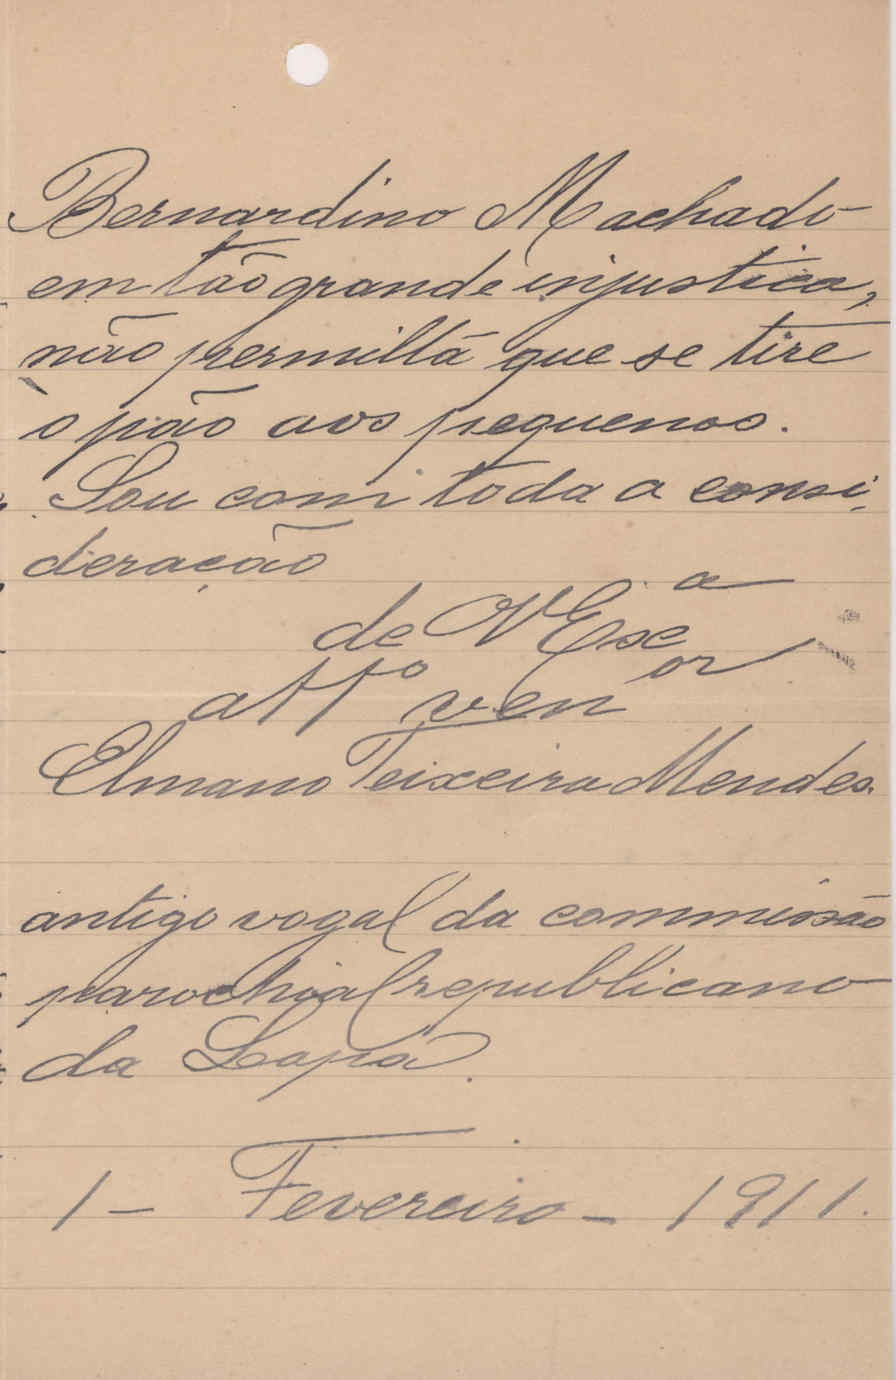 Bernardino Machado
em tão grande injustica,
não permittá que se tire
o pão aos pequenos.
Sou com toda a consi-
deração
de V Exc a
att o ven or
Elmano Teixeira Mendes.
antigo vogal da commissão
parochial republicano
da Lapa.
1 - Fevereiro - 1911.